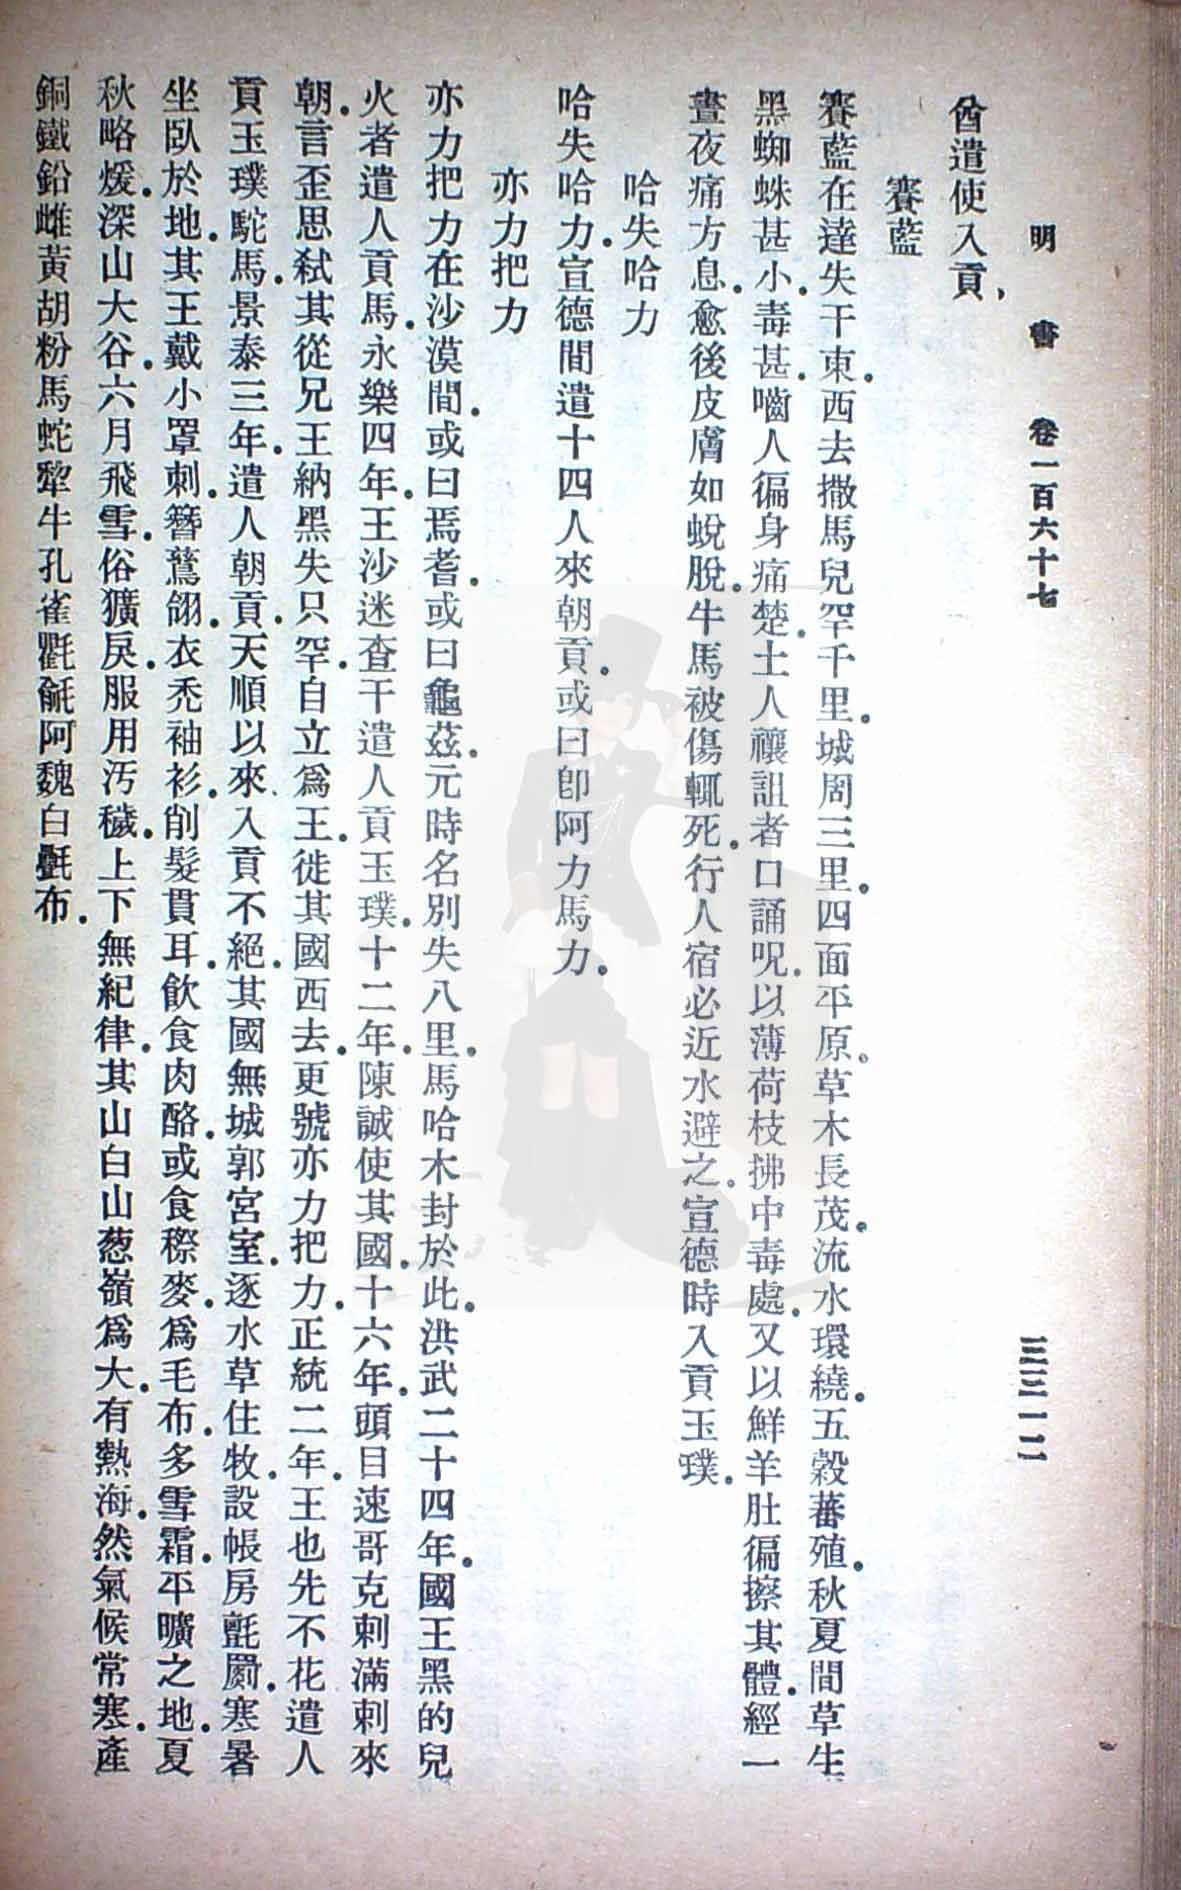 明　書　卷一百六十七　三三一二
酋遣使入貢，
賽藍
賽藍在達失干東。西去撒馬兒罕千里。城周三里。四面平原。草木長茂。流水環繞。五穀蕃殖。秋夏間草生
黑蜘蛛甚小。毒甚。嚙人徧身痛楚。土人禳詛者口誦呪。以薄荷枝拂中毒處。又以鮮羊肚徧擦其體。經一
晝夜痛方息。愈後皮膚如蛻脫。牛馬被傷輒死。行人宿必近水避之。宣德時入貢玉璞。
哈失哈力
哈失哈力。宣德間遣十四人來朝貢。或曰卽阿力馬力。
亦力把力
亦力把力在沙漠間。或曰焉耆。或曰龜茲。元時名別失八里。馬哈木封於此。洪武二十四年。國王黑的兒
火者遣人貢馬。永樂四年。王沙迷查干遣人貢玉璞。十二年。陳誠使其國。十六年。頭目速哥克剌滿剌來
朝。言歪思弒其從兄王納黑失只罕。自立爲王。徙其國西去。更號亦力把力。正統二年。王也先不花遣人
貢玉璞駝馬。景泰三年。遣人朝貢。天順以來。入貢不絕。其國無城郭宮室。逐水草住牧。設帳房氈罽。寒暑
坐臥於地。其王戴小罩刺。簪鶿翎。衣禿袖衫。削髮貫耳。飲食肉酪。或食穄麥。爲毛布。多雪霜。平曠之地。夏
秋略煖。深山大谷。六月飛雪。俗獷戾。服用汚穢。上下無紀律。其山白山葱嶺爲大。有熱海。然氣候常寒。產
銅鐵鉛雌黃胡粉馬蛇犂牛孔雀氍毹阿魏白㲲布。